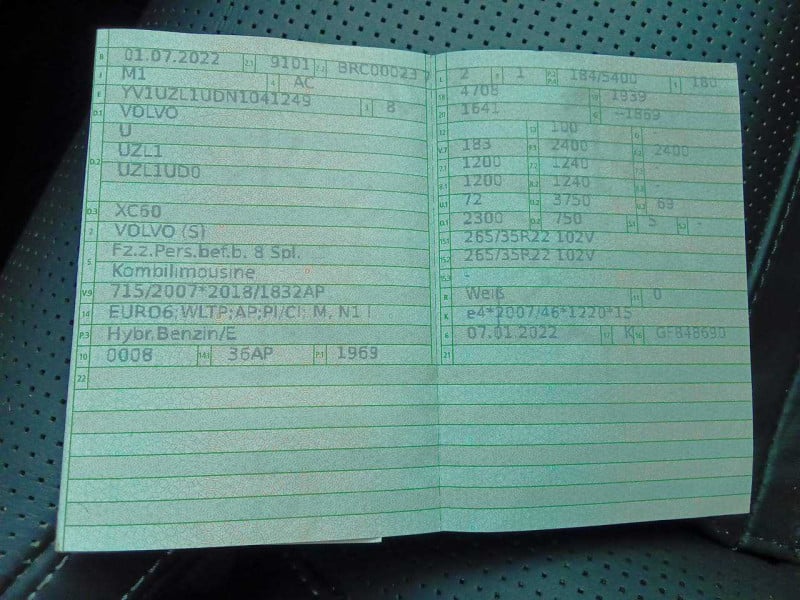 B 01.07.2022 2.1 9101 2.2 BRC00023 7
J M1 4 AC
E YV1UZL1UDN1041249 3 8
D.1 VOLVO
D.2 U
UZL1
UZL1UD0
D.3 XC60
2 VOLVO (S)
5 Fz.z.Pers.bef.b. 8 Spl.
Kombilimousine
V.9 715/2007*2018/1832AP
14 EURO6;WLTP;AP;PI/CI; M, N1 I
P.3 Hybr.Benzin/E
10 0008 14.1 36AP P.1 1969
22
L 2 9 1 P.2 P.4 184/5400 T 180
18 4708 19 1939
20 1641 G --1869
12 - 13 100 Q -
V.7 183 F.1 2400 F.2 2400
7.1 1200 7.2 1240 7.3 -
8.1 1200 8.2 1240 8.3 -
U.1 72 U.2 3750 U.3 69
O.1 2300 O.2 750 S.1 5 S.2 -
15.1 265/35R22 102V
15.2 265/35R22 102V
15.3 -
R Weiß 11 0
K e4*2007/46*1220*15
6 07.01.2022 17 K 16 GF848690
21